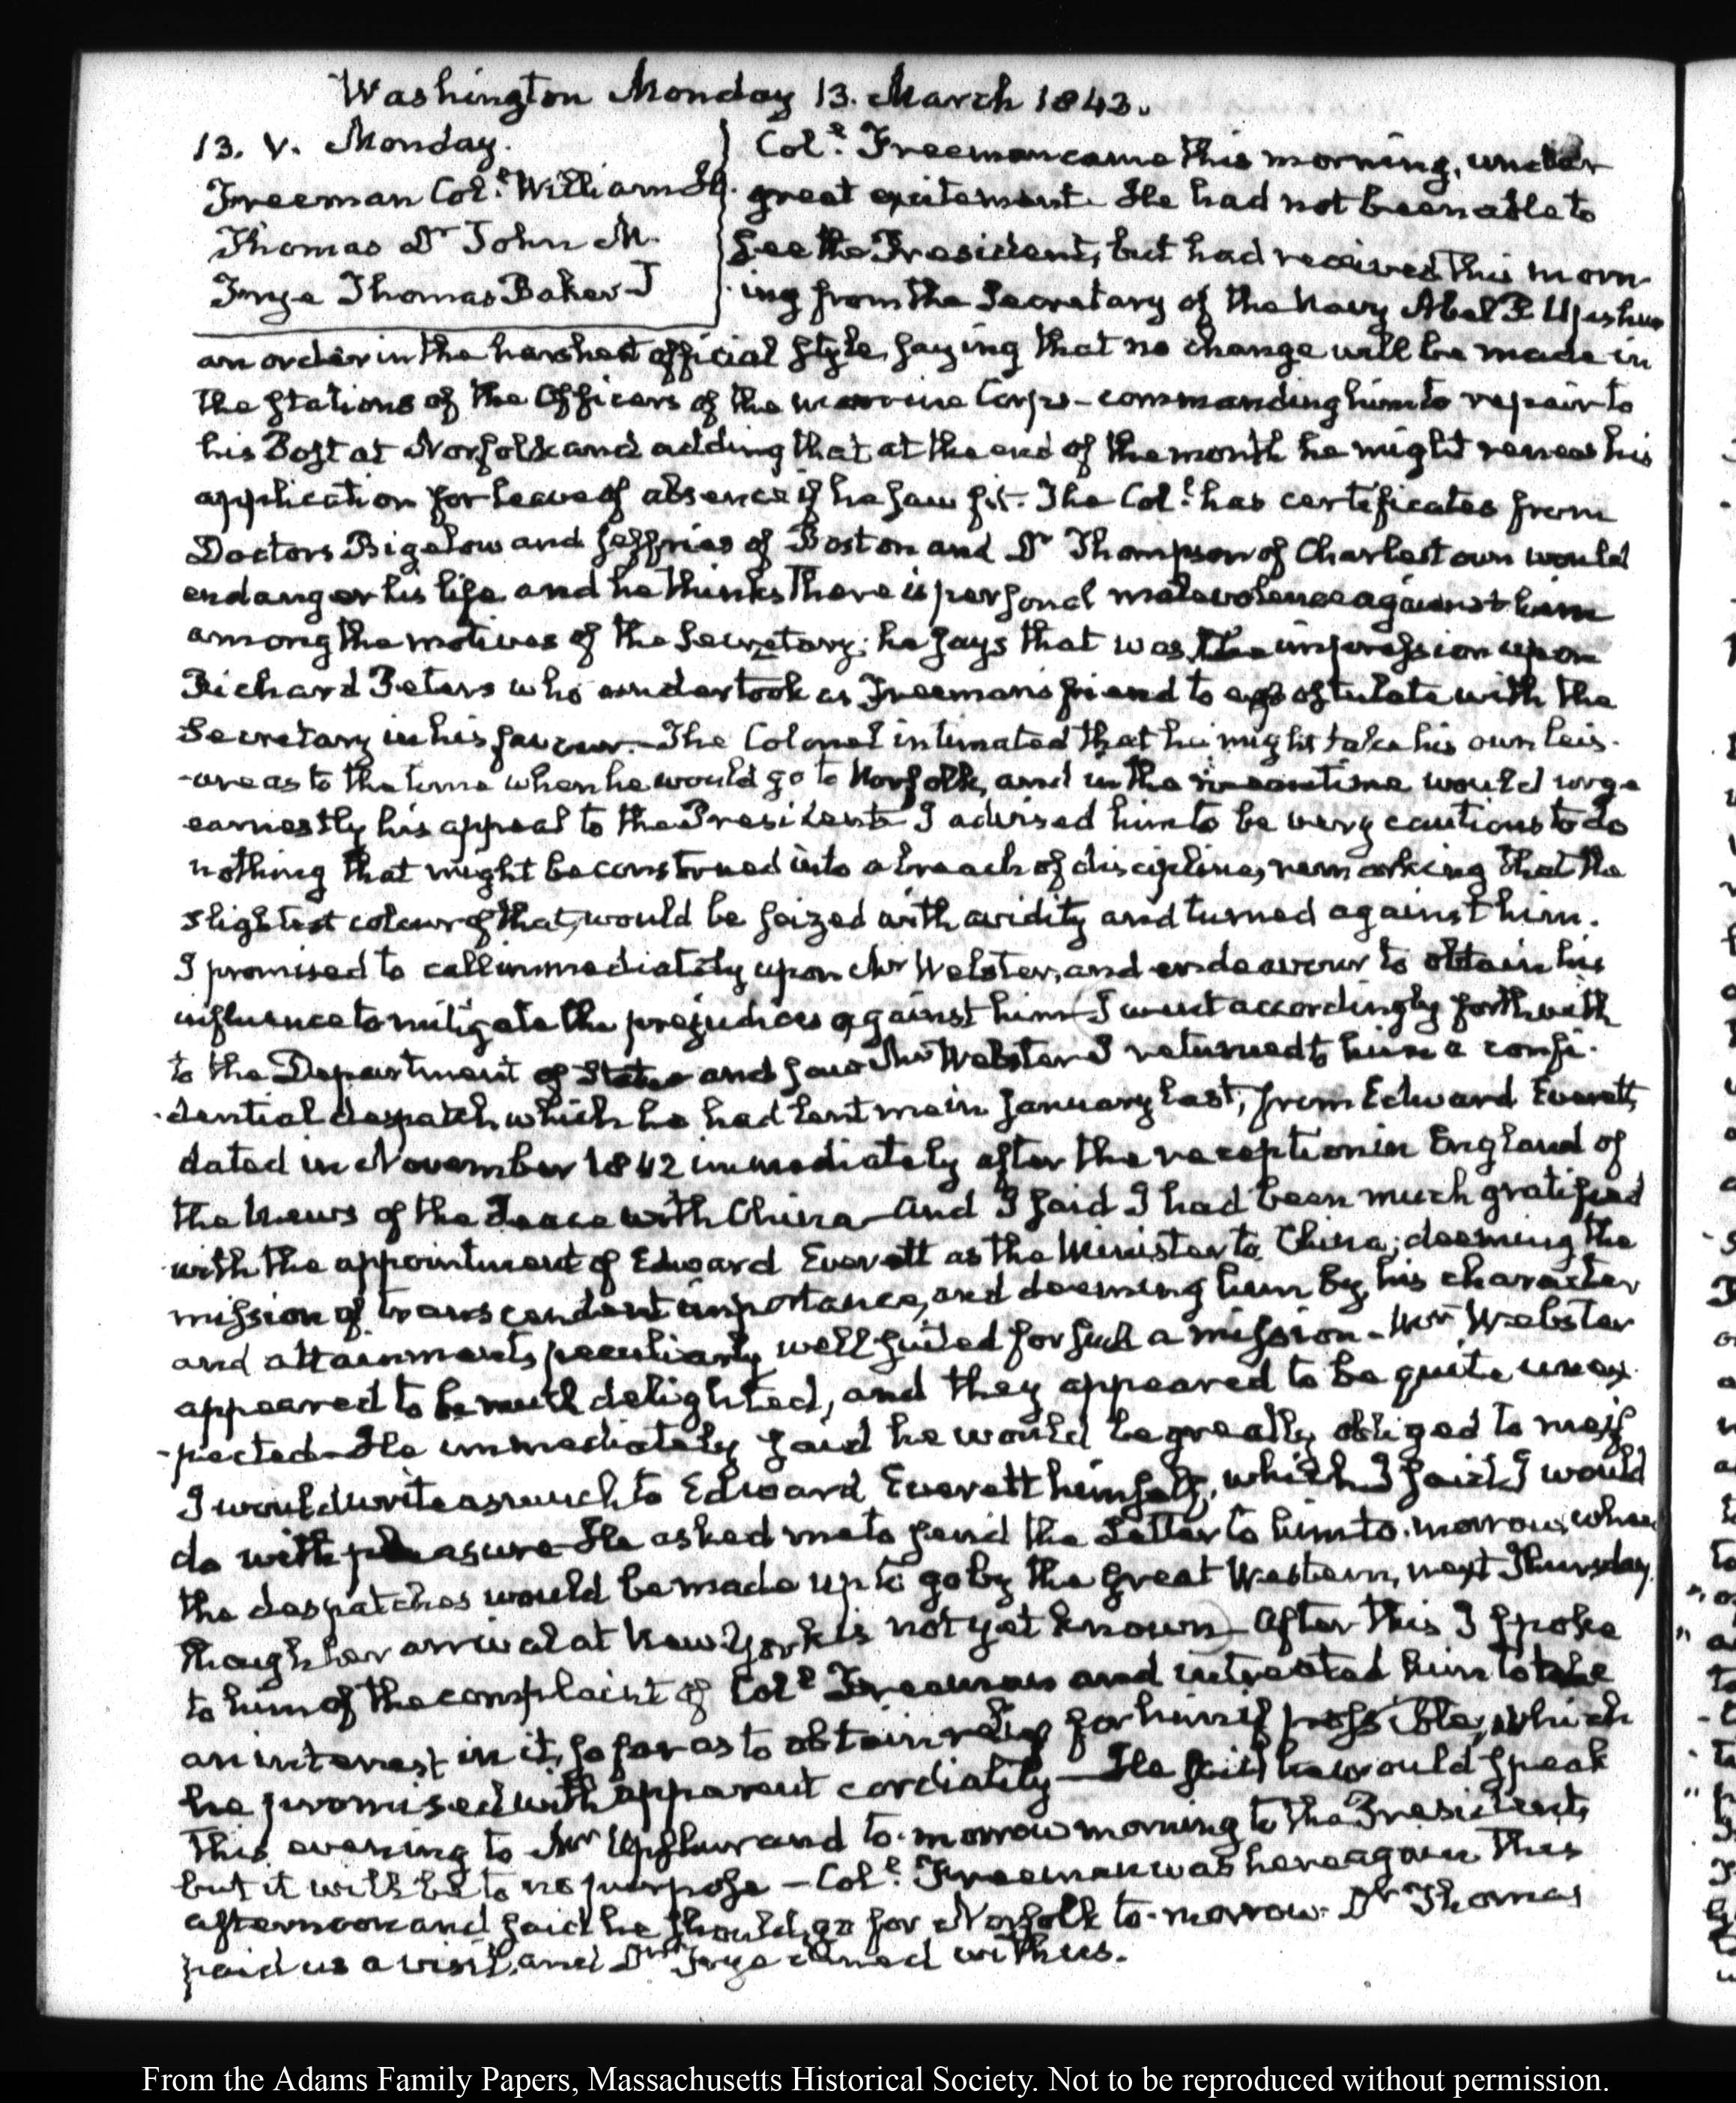 Washington Monday 13. March 1843.
13. V. Monday.
Freeman Col.l William H.
Thomas Dr John M.
Frye Thomas Baker J
Col.l Freeman came this morning, under
great excitement. He had not been able to
see the President, but had received this morn-
ing from the Secretary of the Navy Abel P. Upshur
an order in the harshest official style, saying that no change will be made in
the stations of the Officers of the marine Corps – commanding him to repair to
his Post at Norfolk and adding that at the end of the month he might renew his
application for leave of absence if he saw fit. The Col.l has certificates from
Doctors Bigelow and Jeffries of Boston and Dr Thompson of Charlestown would
endanger his life and he thinks there is personal malevolence against him
among the motives of the Secretary; he says that was the impression upon
Richard Peters who undertook as Freeman's friend to expostulate with the
Secretary in his favour. The Colonel intimated that he might take his own leis-
-ure as to the time when he would go to Norfolk, and in the meantime would urge
earnestly his appeal to the President. I advised him to be very cautious to do
nothing that might be construed into a breach of discipline, remarking that the
slightest colour of that, would be seized with avidity and turned against him.
I promised to call immediately upon Mr Webster, and endeavour to obtain his
influence to mitigate the prejudices against him – I went accordingly forthwith
to the Department of State and saw Mr Webster – I returned to him a confi-
-dential despatch which he had lent me in January last, from Edward Everett,
dated in November 1842 immediately after the reception in England of
the News of the Peace with China – And I said I had been much gratified
with the appointment of Edward Everett as the Minister to China; deeming the
mission of transcendent importance, and deeming him by his character
and attainments peculiarly well suited for such a mission – Mr Webster
appeared to be much delighted, and they appeared to be quite unex-
-pected – He immediately said he would be greatly obliged to me if
I would write as much to Edward Everett himself, which I said I would
do with pleasure – He asked me to send the Letter to him to-morrow, when
the despatches would be made up to go by the Great Western, next Thursday,
though her arrival at New York is not yet known – After this I spoke
to him of the complaint of Col.l Freeman and intreated him to take
an interest in it, so far as to obtain relief for him if possible, which
he promised with apparent cordiality – He said he would speak
this evening to Mr Upshur and to-morrow morning to the President,
but it will be to no purpose – Col.l Freeman was here again this
afternoon and said he should go for Norfolk to-morrow. Dr Thomas
paid us a visit, and Frye dined with us.
From the Adams Family Papers, Massachusetts Historical Society. Not to be reproduced without permission.